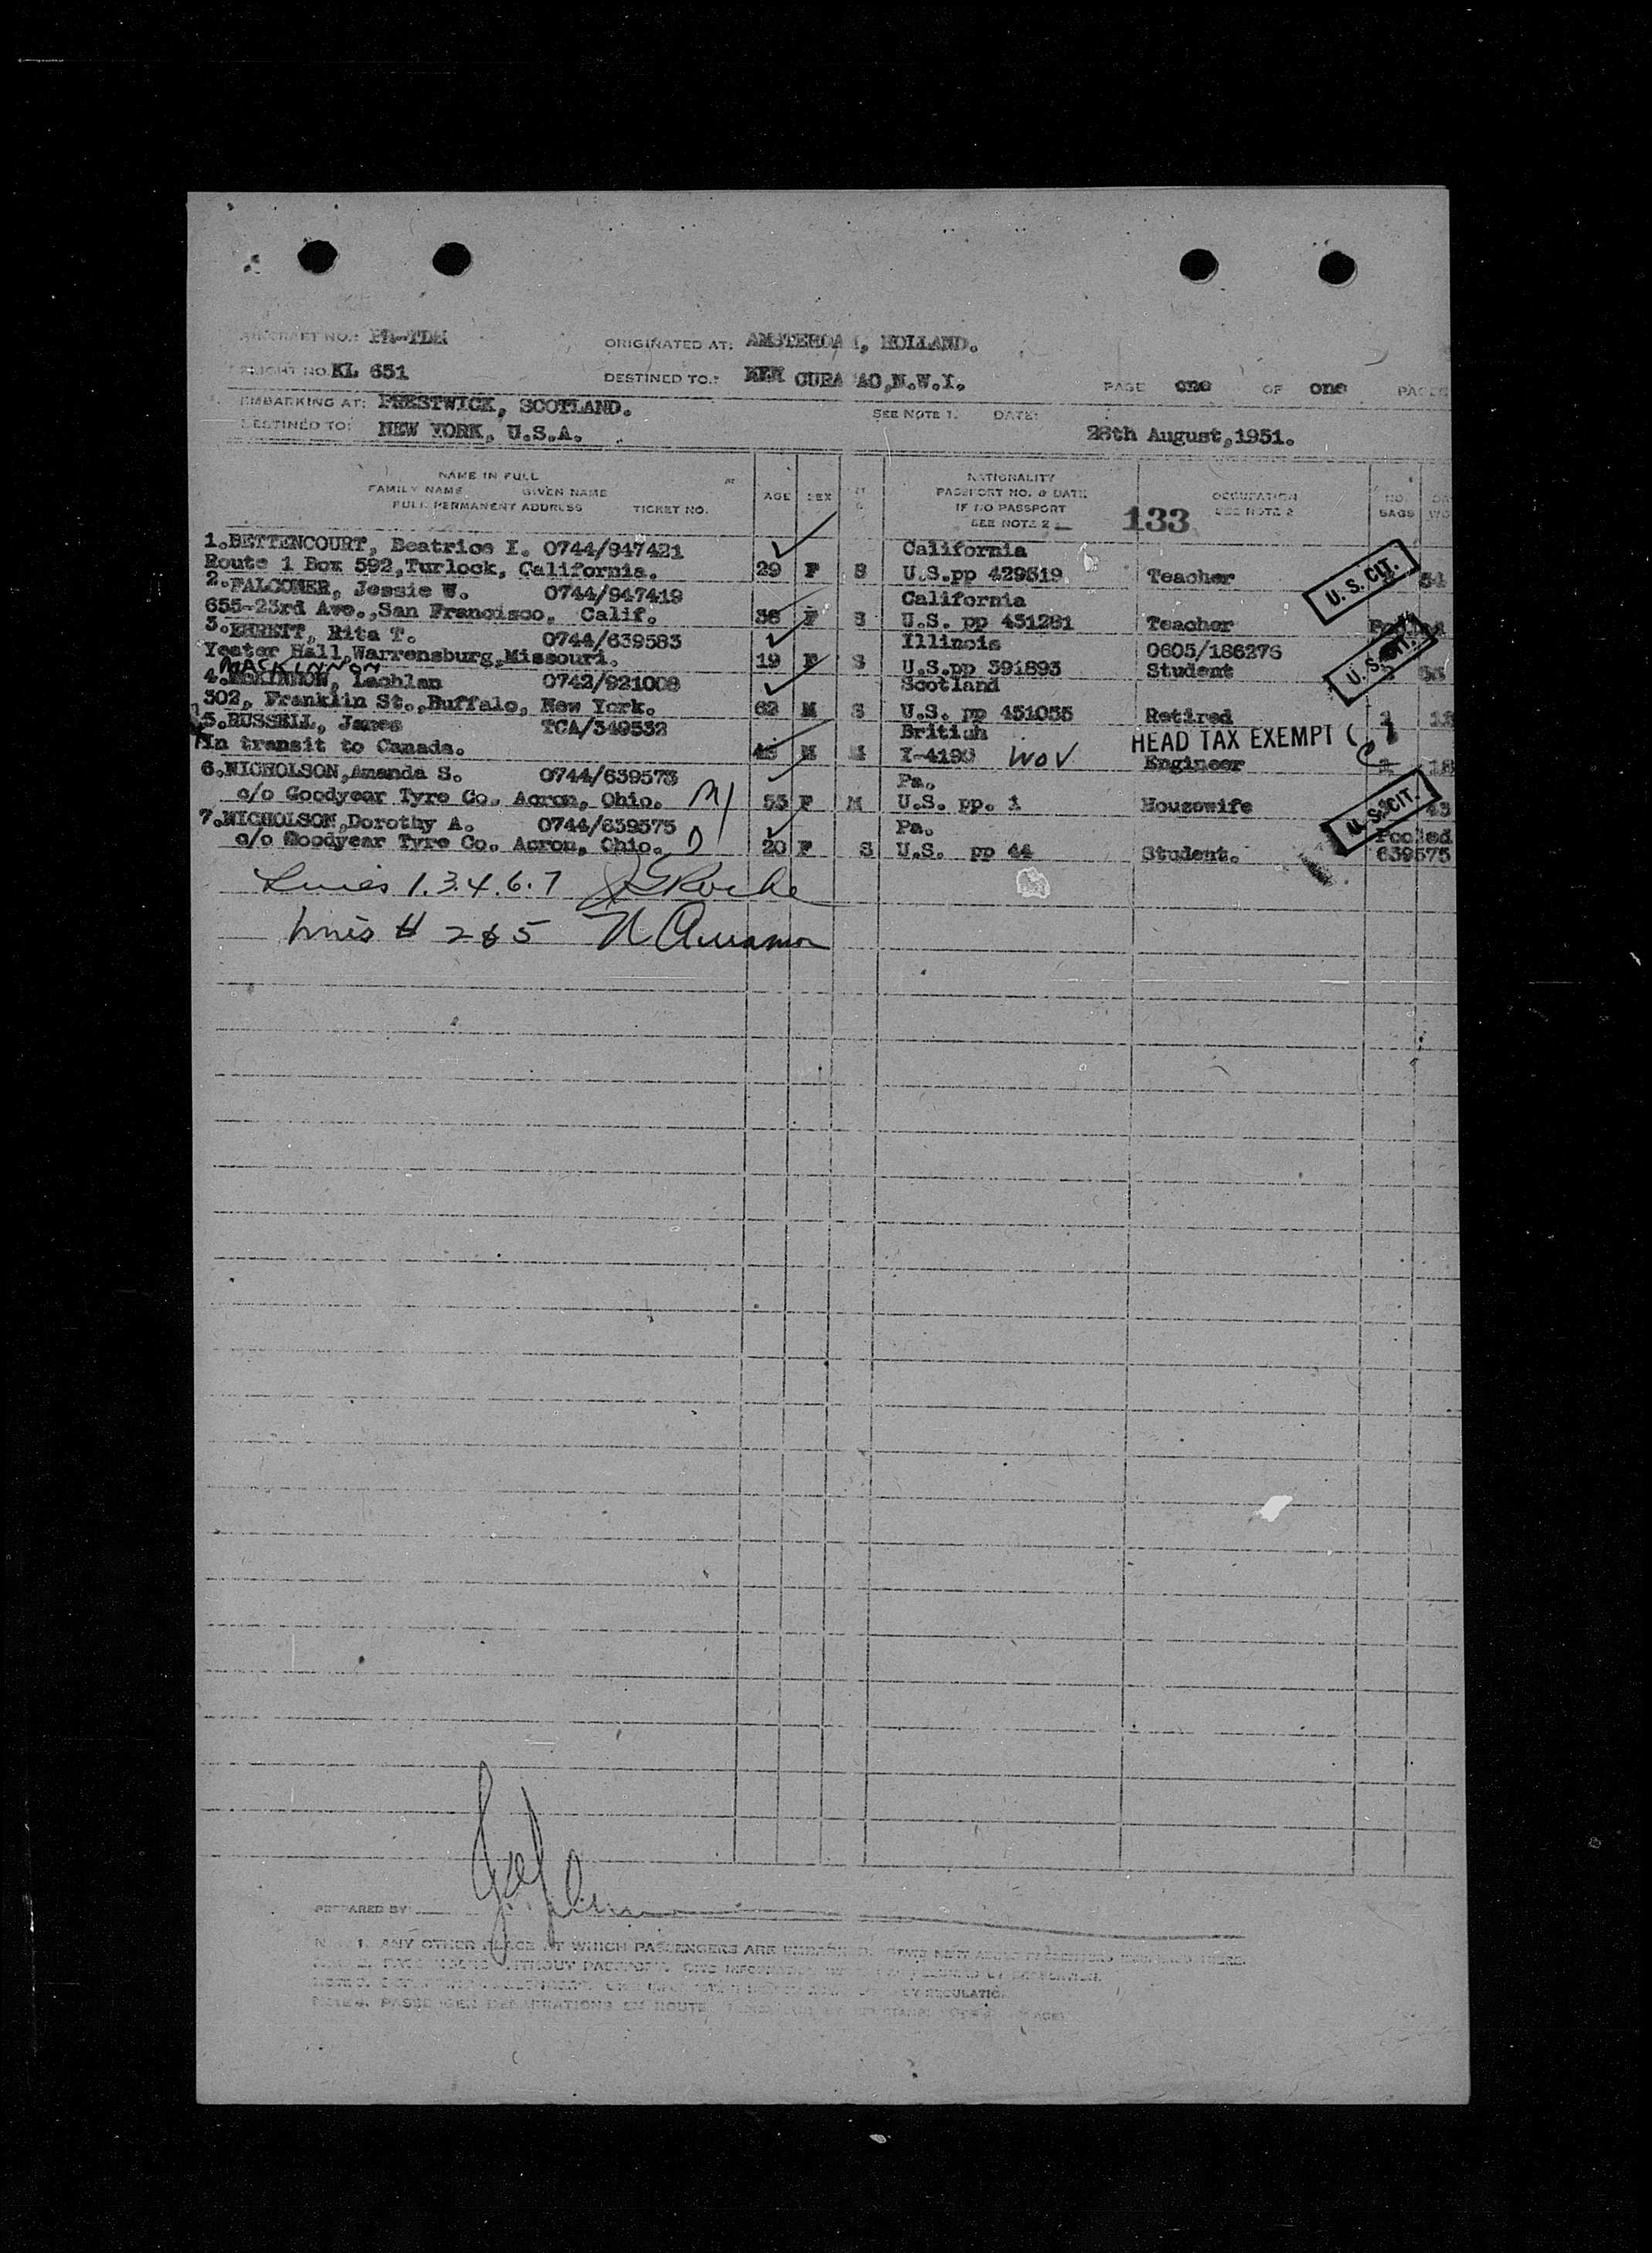 AIRCRAFT NO.: PH-TDM ORIGINATED AT: AMSTERDAM, HOLLAND.
FLIGHT NO. KL 651 DESTINED TO: CURACAO, N.W.I. PAGE one OF one PAGES
EMBARKING AT: PRESTWICK, SCOTLAND. SEE NOTE 1. DATE:
DESTINED TO: NEW YORK, U.S.A. 28th August, 1951.
NAME IN FULL NATIONALITY
FAMILY NAME GIVEN NAME AGE SEX PASSPORT NO. & DATE OCCUPATION NO.
FULL PERMANENT ADDRESS TICKET NO. IF NO PASSPORT SEE NOTE 2 BAGS
SEE NOTE 2 133
1.BETTENCOURT, Beatrice I. 0744/947421 California
Route 1 Box 592,Turlock, California. 29 F S U.S.pp 429519 Teacher U.S. CIT. 34
2.FALCONER, Jessie W. 0744/947419 California
655-23rd Ave.,San Francisco, Calif. 36 F S U.S. pp 431281 Teacher
3.EHRETT, Rita T. 0744/639583 Illinois 0605/186276
Yeater Hall,Warrensburg,Missouri. 19 F S U.S.pp 391893 Student U.S. CIT.
MACKINNON
4.MCKINNON, Lachlan 0742/921008 Scotland
302, Franklin St.,Buffalo, New York. 62 M S U.S. pp 451055 Retired
5.RUSSELL, James TCA/349532 British HEAD TAX EXEMPT (
In transit to Canada. 45 M M Y-4190 WOV Engineer 18
6.NICHOLSON,Amanda S. 0744/639573 Pa.
c/o Goodyear Tyre Co. Acron, Ohio. 55 F M U.S. pp. 1 Housewife U.S. CIT. 43
7.NICHOLSON,Dorothy A. 0744/639575 Pa. Pooled
c/o Goodyear Tyre Co. Acron, Ohio. 20 F S U.S. pp 44 Student. 639575
Lines 1.3.4.6.7 Roche
Lines # 2 & 5
PREPARED BY
1. ANY OTHER PLACE AT WHICH PASSENGERS ARE